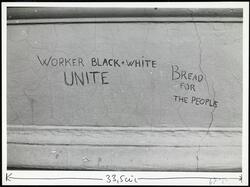 WORKER BLACK + WHITE
UNITE
BREAD
FOR
THE PEOPLE
33,5